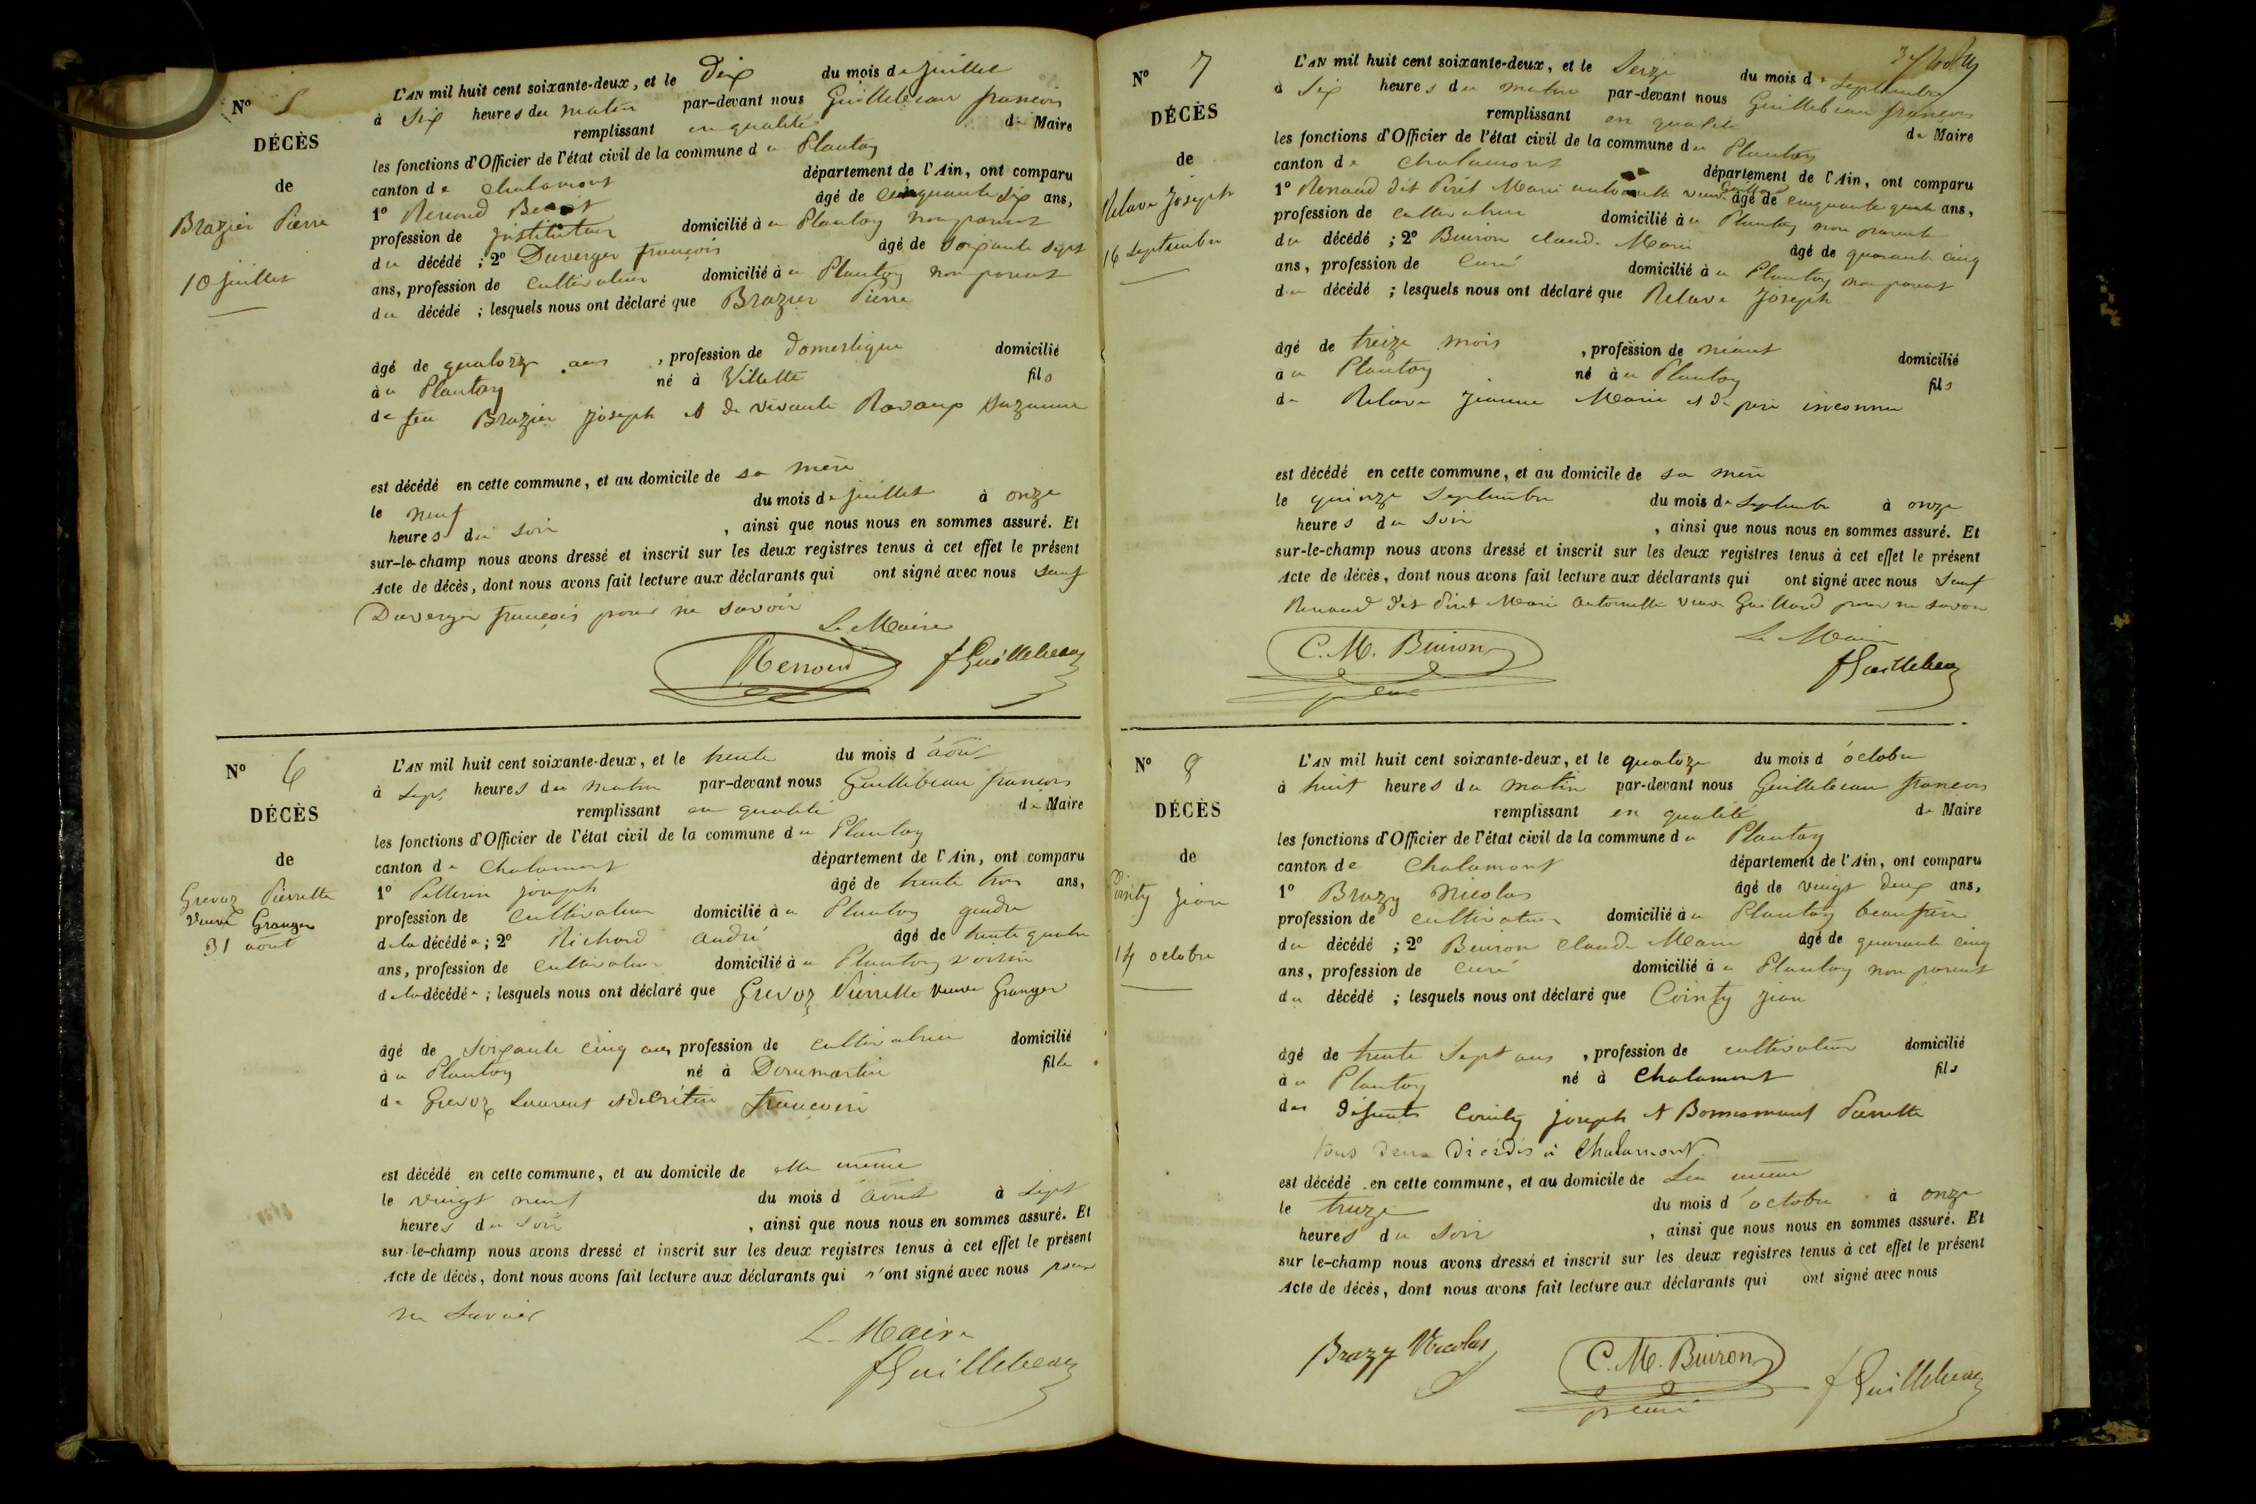 N° 5
DÉCÈS
de
Brazier Pierre
10 juillet
L'AN mil huit cent soixante-deux, et le dix du mois de juillet
à six heures du matin par-devant nous Guillebeau francois
remplissant en qualité de Maire
les fonctions d'Officier de l'état civil de la commune du Plantay
canton de Chalamont département de l'Ain, ont comparu
1° Renoud Benoit âgé de cinquante dix ans,
profession de instituteur domicilié à u Plantay non parent
du décédé ; 2° Duverger françois âgé de soixante sept
ans, profession de cultivateur domicilié à u Plantay non parent
du décédé ; lesquels nous ont déclaré que Brazier Pierre
âgé de quatorze ans , profession de domestique domicilié
à u Plantay né à Villette fils
de feu Brazier joseph et de vivante Ravaux Suzanne
est décédé en cette commune, et au domicile de sa mère
le neuf du mois de juillet à onze
heures du soir , ainsi que nous nous en sommes assuré. Et
sur-le-champ nous avons dressé et inscrit sur les deux registres tenus à cet effet le présent
Acte de décès, dont nous avons fait lecture aux déclarants qui ont signé avec nous sauf
Duverger françois pour ne savoir
Le Maire
Renoud fGuillebeau
N° 6
DÉCÈS
de
Grevoz Pierrette
veuve Granger
31 août
L'AN mil huit cent soixante-deux, et le trente du mois d'août
à sept heures du matin par-devant nous Guillebeau francois
remplissant en qualité de Maire
les fonctions d'Officier de l'état civil de la commune du Plantay
canton de Chalamont département de l'Ain, ont comparu
1° joseph âgé de trente trois ans,
profession de cultivateur domicilié à u Plantay gendre
de la décédée ; 2° Richard andré âgé de trente quatre
ans, profession de cultivateur domicilié à u Plantay voisin
de la décédée ; lesquels nous ont déclaré que Grevoz Pierrette veuve Granger
âgé de soixante cinq ans profession de cultivatrice domicilié
à u Plantay né à Dommartin fille
de Grevoz Laurent et de Crétin françoise
est décédé en cette commune, et au domicile de elle même
le vingt neuf du mois d'août à sept
heures du soir , ainsi que nous nous en sommes assuré. Et
sur-le-champ nous avons dressé et inscrit sur les deux registres tenus à cet effet le présent
Acte de décès, dont nous avons fait lecture aux déclarants qui n'ont signé avec nous pour
ne savoir
Le Maire
fGuillebeau
N° 7
DÉCÈS
de
Relave Joseph
16 septembre
L'AN mil huit cent soixante-deux, et le seize du mois de septembre
à six heures du matin par-devant nous Guillebeau francois
remplissant en qualité de Maire
les fonctions d'Officier de l'état civil de la commune du Plantay
canton de Chalamont département de l'Ain, ont comparu
1° Renaud dit Piret Marie antoinette veuve Guillard âgé de cinquante quatre ans,
profession de cultivatrice domicilié à u Plantay non parente
du décédé ; 2° Buiron claude Marie âgé de quarante cinq
ans, profession de curé domicilié à u Plantay non parent
du décédé ; lesquels nous ont déclaré que Relave Joseph
âgé de treize mois , profession de néant domicilié
à u Plantay né à u Plantay fils
de Relave jeanne Marie et de père inconnu
est décédé en cette commune, et au domicile de sa mère
le quinze septembre du mois de septembre à onze
heures du soir , ainsi que nous nous en sommes assuré. Et
sur-le-champ nous avons dressé et inscrit sur les deux registres tenus à cet effet le présent
Acte de décès, dont nous avons fait lecture aux déclarants qui ont signé avec nous sauf
Renaud dit Piret Marie antoinette veuve Guillard pour ne savoir
Le Maire
C. M. Buiron fGuillebeau
curé
N° 8
DÉCÈS
de
Cointy jean
14 octobre
L'AN mil huit cent soixante-deux, et le quatorze du mois d'octobre
à huit heures du matin par-devant nous Guillebeau francois
remplissant en qualité de Maire
les fonctions d'Officier de l'état civil de la commune du Plantay
canton de Chalamont département de l'Ain, ont comparu
1° Brazy Nicolas âgé de vingt deux ans,
profession de cultivateur domicilié à u Plantay beaufrère
du décédé ; 2° Buiron claude Marie âgé de quarante cinq
ans, profession de curé domicilié à u Plantay non parent
du décédé ; lesquels nous ont déclaré que Cointy jean
âgé de trente sept ans , profession de cultivateur domicilié
à u Plantay né à Chalamont fils
des défunts Cointy joseph et Pierrette
tous deux décédés à Chalamont.
est décédé en cette commune, et au domicile de lui même
le treize du mois d'octobre à onze
heures du soir , ainsi que nous nous en sommes assuré. Et
sur le-champ nous avons dressé et inscrit sur les deux registres tenus à cet effet le présent
Acte de décès, dont nous avons fait lecture aux déclarants qui ont signé avec nous
Brazy Nicolas C. M. Buiron fGuillebeau
curé